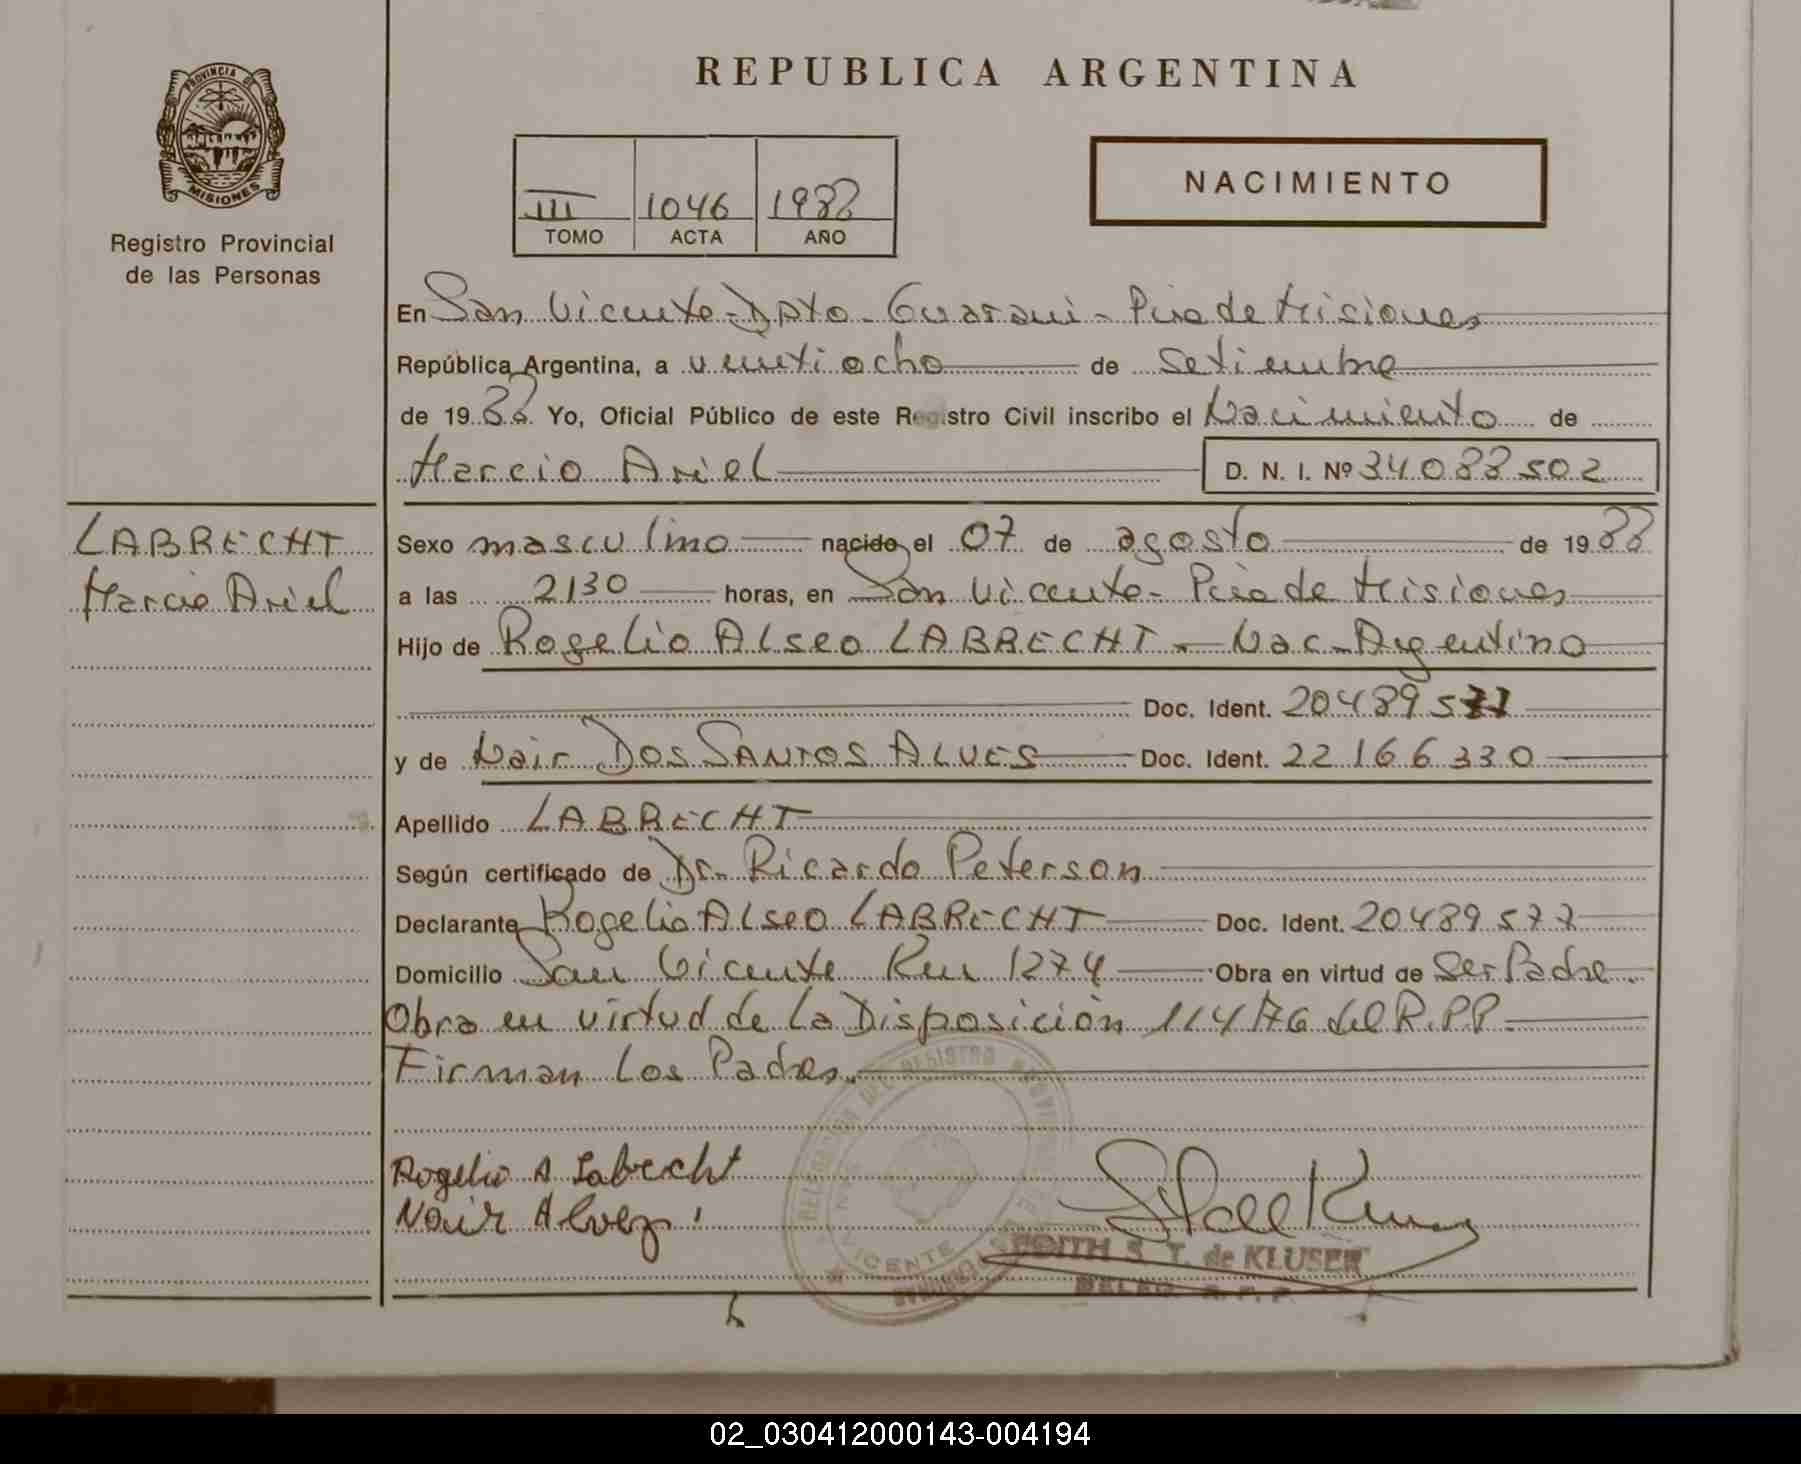 REPUBLICA ARGENTINA
PROVINCIA DE
MISIONES
Registro Provincial
de las Personas
III 1046 1988
TOMO ACTA AÑO
NACIMIENTO
En San Vicente-Dpto-Guarani-Pcia de Misiones
República Argentina, a veintiocho de setiembre
de 1988 Yo, Oficial Público de este Registro Civil inscribo el Nacimiento de
Marcio Ariel D. N. I. Nº 34088502
LABRECHT
Marcio Ariel
Sexo masculino nacido el 07 de agosto de 1988
a las 2130 horas, en San Vicente-Pcia de Misiones
Hijo de Rogelio Alseo LABRECHT - Nac-Argentino
Doc. Ident. 20489577
y de Nair DOS SANTOS ALVES Doc. Ident. 22166330
Apellido LABRECHT
Según certificado de Dr. Ricardo Peterson
Declarante Rogelio Alseo LABRECHT Doc. Ident. 20489577
Domicilio San Vicente Km 1274 Obra en virtud de Ser Padre.
Obra en virtud de la Disposición 114/76 del R.P.P.
Firman los Padres.
Rogelio A Labrecht
Nair Alvez
EDITH S. T. de KLUSER
DELEG. R. P. P.
02_030412000143-004194